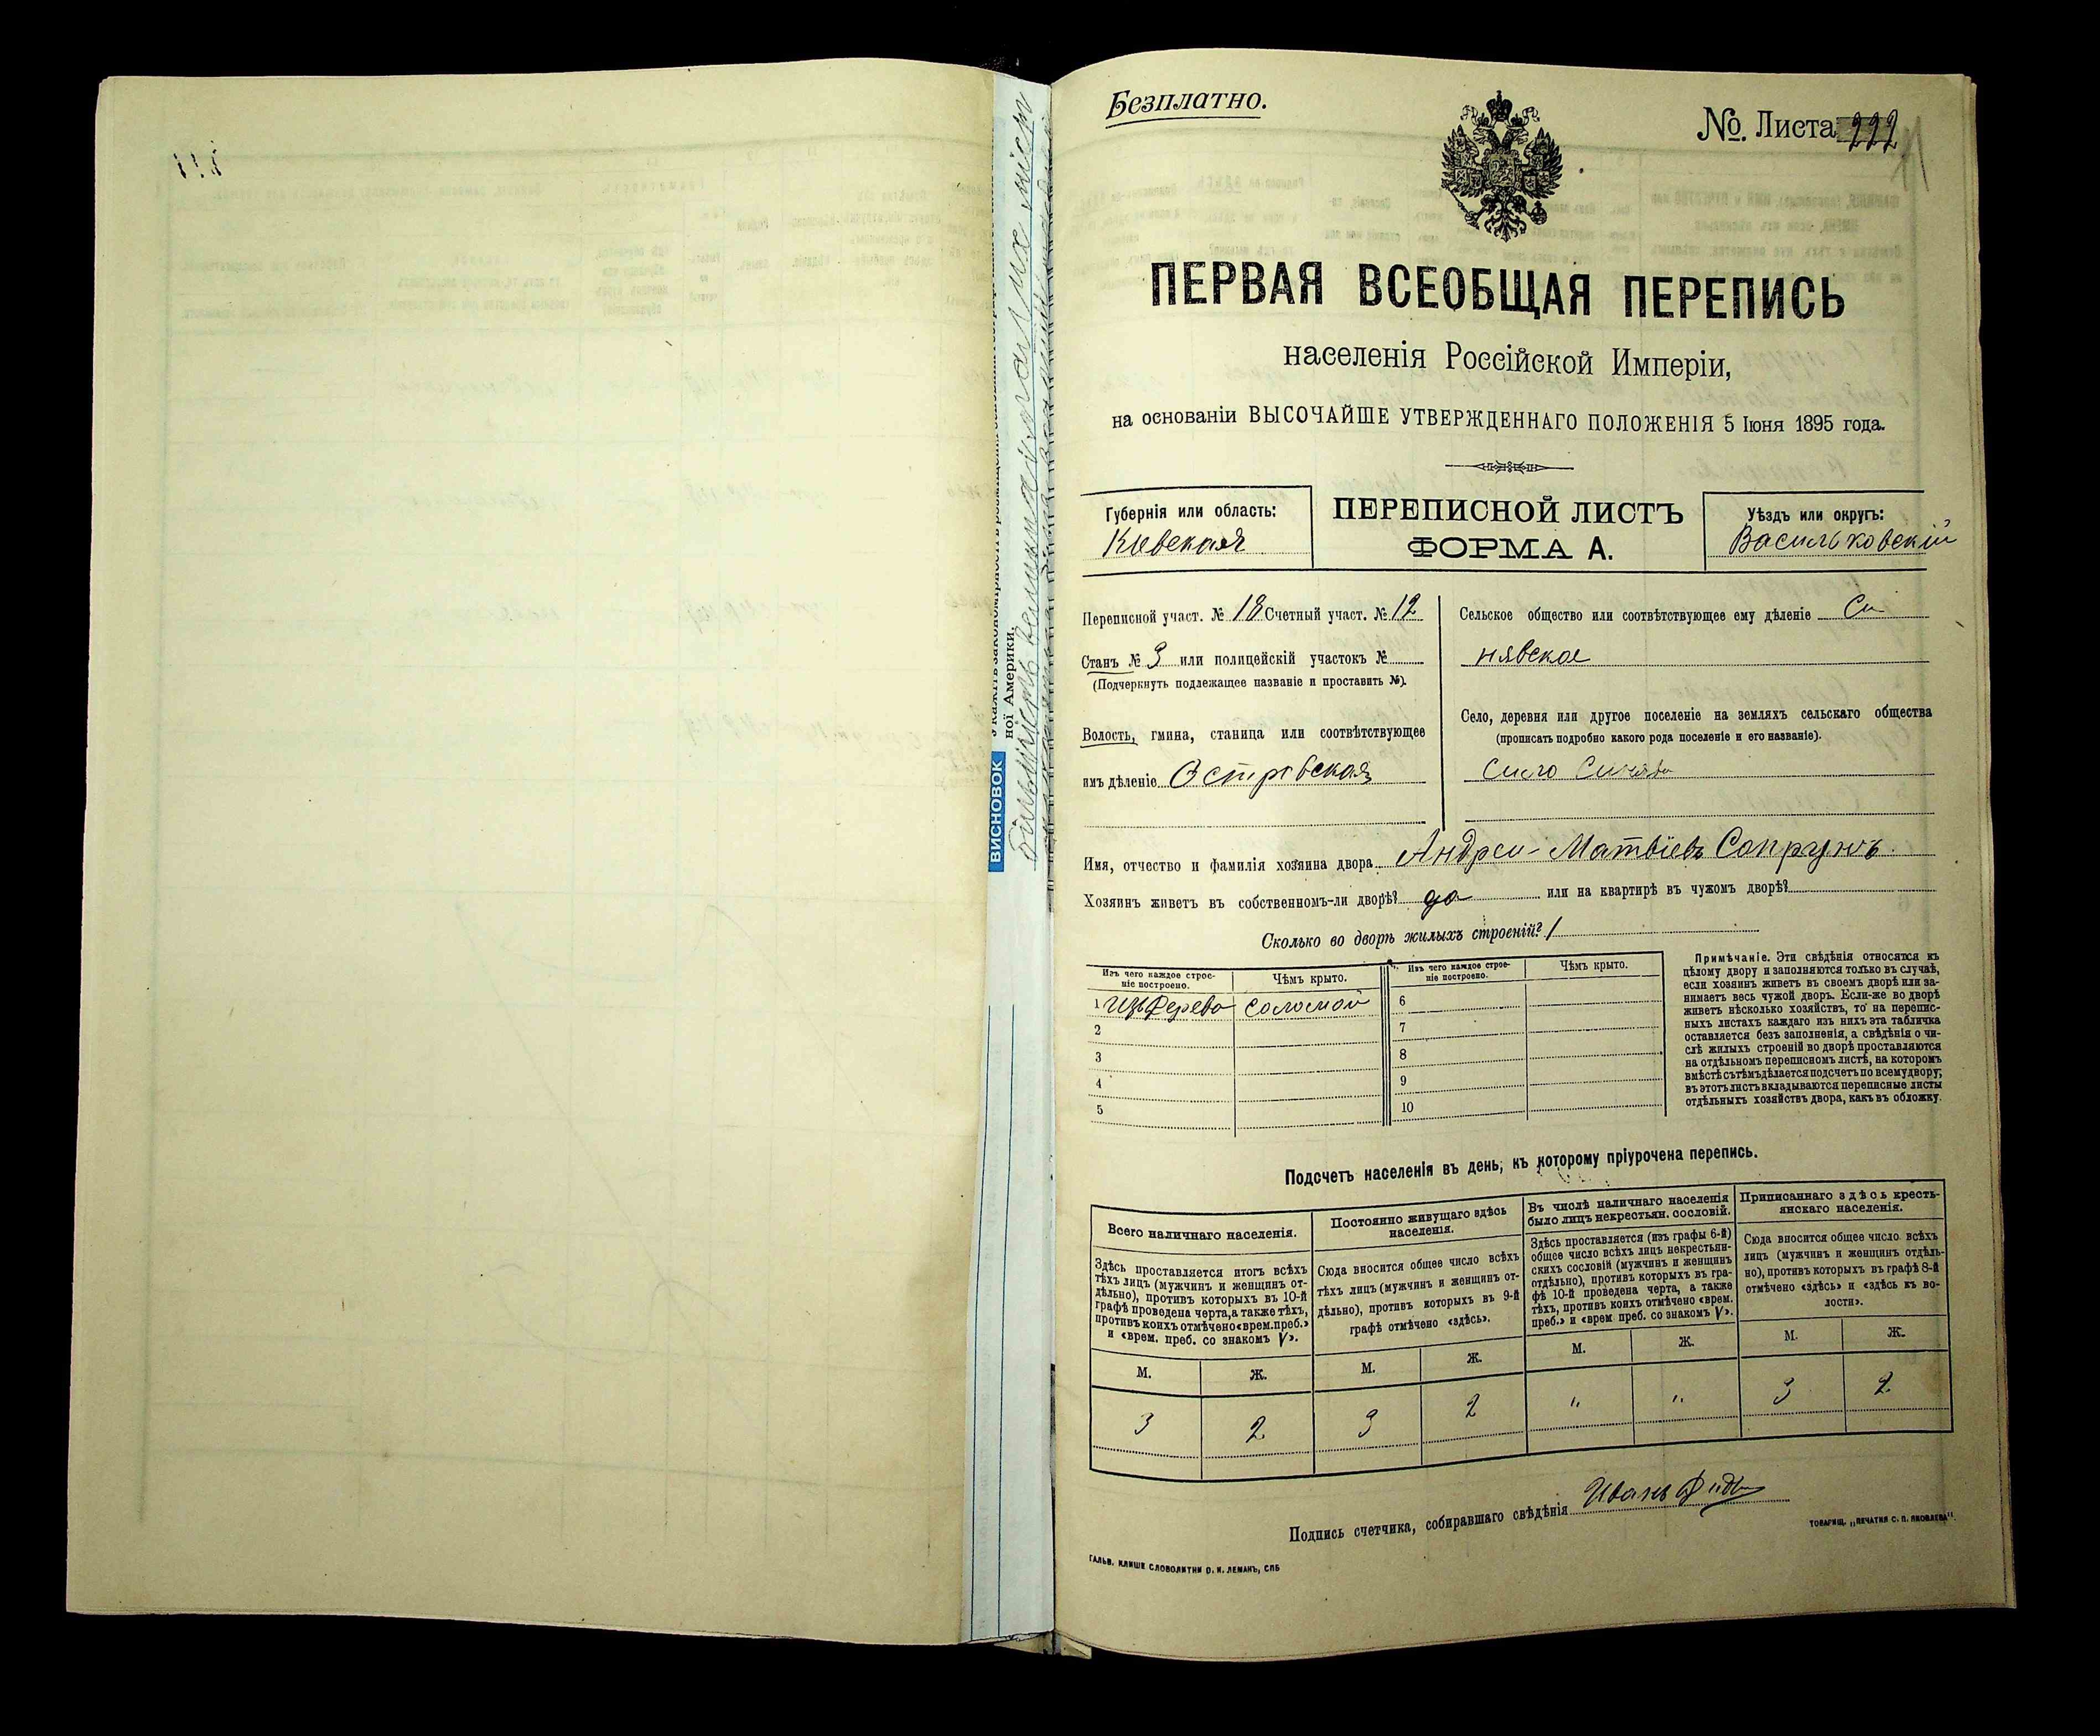 Безплатно.
№ Листа 222
ПЕРВАЯ ВСЕОБЩАЯ ПЕРЕПИСЬ
населенія Россійской Имперіи,
на основаніи ВЫСОЧАЙШЕ УТВЕРЖДЕННАГО ПОЛОЖЕНІЯ 5 Іюня 1895 года.
Губернія или область:
Кіевская
ПЕРЕПИСНОЙ ЛИСТЪ
ФОРМА А.
Уѣздъ или округъ:
Васильковскій
Переписной участ. № 18 Счетный участ. № 12
Станъ № 3 или полицейскій участокъ №
(Подчеркнуть подлежащее названіе и проставить №).
Волость, гмина, станица или соотвѣтствующее
имъ дѣленіе Островская
Сельское общество или соотвѣтствующее ему дѣленіе Си
нявское
Село, деревня или другое поселеніе на земляхъ сельскаго общества
(прописать подробно какого рода поселеніе и его названіе).
Село Синява
Имя, отчество и фамилія хозяина двора Андрей Матвіевъ Сопрунъ
Хозяинъ живетъ въ собственномъ-ли дворѣ? да или на квартирѣ въ чужомъ дворѣ?
Сколько во дворѣ жилыхъ строеній? 1
Изъ чего каждое строе-
ніе построено.
Чѣмъ крыто.
Изъ чего каждое строе-
ніе построено.
Чѣмъ крыто.
1 Изъ дерева соломой 6
2 7
3 8
4 9
5 10
Примѣчаніе. Эти свѣдѣнія относятся къ
цѣлому двору и заполняются только въ случаѣ,
если хозяинъ живетъ въ своемъ дворѣ или за-
нимаетъ весь чужой дворъ. Если-же во дворѣ
живетъ нѣсколько хозяйствъ, то на перепис-
ныхъ листахъ каждаго изъ нихъ эта табличка
оставляется безъ заполненія, а свѣдѣнія о чи-
слѣ жилыхъ строеній во дворѣ проставляются
на отдѣльномъ переписномъ листѣ, на которомъ
вмѣстѣ съ тѣмъ дѣлается подсчетъ по всему двору;
въ этотъ листъ вкладываются переписные листы
отдѣльныхъ хозяйствъ двора, какъ въ обложку.
Подсчетъ населенія въ день, къ которому пріурочена перепись.
Всего наличнаго населенія.
Здѣсь проставляется итогъ всѣхъ
тѣхъ лицъ (мужчинъ и женщинъ от-
дѣльно), противъ которыхъ въ 10-й
графѣ проведена черта, а также тѣхъ,
противъ коихъ отмѣчено «врем. преб.»
и «врем. преб. со знакомъ V».
Постоянно живущаго здѣсь
населенія.
Сюда вносится общее число всѣхъ
тѣхъ лицъ (мужчинъ и женщинъ от-
дѣльно), противъ которыхъ въ 9-й
графѣ отмѣчено «здѣсь».
Въ числѣ наличнаго населенія
было лицъ некрестьян. сословій.
Здѣсь проставляется (изъ графы 6-й)
общее число всѣхъ лицъ некрестьян-
скихъ сословій (мужчинъ и женщинъ
отдѣльно), противъ которыхъ въ гра-
фѣ 10-й проведена черта, а также
тѣхъ, противъ коихъ отмѣчено «врем.
преб.» и «врем преб. со знакомъ V».
Приписаннаго здѣсь кресть-
янскаго населенія.
Сюда вносится общее число всѣхъ
лицъ (мужчинъ и женщинъ отдѣль-
но), противъ которыхъ въ графѣ 8-й
отмѣчено «здѣсь» и «здѣсь къ во-
лости».
М. Ж. М. Ж. М. Ж. М. Ж.
3 2 3 2 " " 3 2
Подпись счетчика, собиравшаго свѣдѣнія Иванъ
ГАЛЬВ. КЛИШЕ СЛОВОЛИТНИ О. И. ЛЕМАНЪ, СПБ
ТОВАРИЩ. „ПЕЧАТНЯ С. П. ЯКОВЛЕВА“.
ної Америки.
ВИСНОВОК